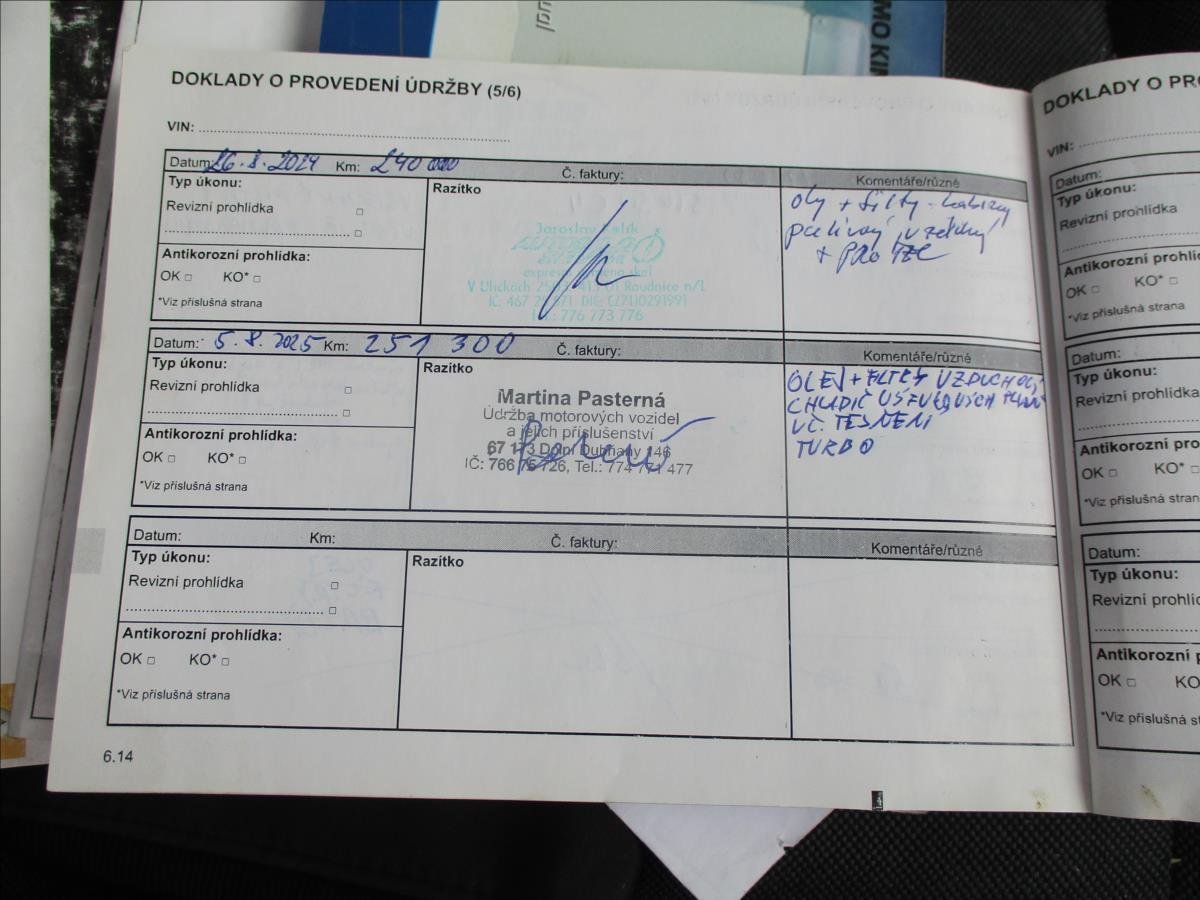 MO KIN
DOKLADY O PROVEDENÍ ÚDRŽBY (5/6)
VIN:
Datum: 26.8.2024 Km: 240 000 Č. faktury: Komentáře/různé
Typ úkonu:
Revizní prohlídka
Antikorozní prohlídka:
OK KO*
*Viz příslušná strana
Razítko
Jaroslav
V Uličkách 413 01 Roudnice n/L
IČ: 467 DIČ: CZ7110291991
Tel.: 776 773 776
+ filtry - kabinový
palivový, vzduchový
Datum: 5.8.2025 Km: 251 300 Č. faktury: Komentáře/různé
Typ úkonu:
Revizní prohlídka
Antikorozní prohlídka:
OK KO*
*Viz příslušná strana
Razítko
Martina Pasterná
Údržba motorových vozidel
a jejich příslušenství
67 173 Dolní Dubňany 146
IČ: 766 75 726, Tel.: 774 771 477
OLEJ + FILTRY VZDUCH OLEJ
CHLADIČ VÝFUKOVÝCH PLYNŮ
VČ. TĚSNĚNÍ
TURBO
Datum: Km: Č. faktury: Komentáře/různé
Typ úkonu:
Revizní prohlídka
Antikorozní prohlídka:
OK KO*
*Viz příslušná strana
Razítko
6.14
DOKLADY O PRO
VIN:
Datum:
Typ úkonu:
Revizní prohlídka
Antikorozní prohlí
OK KO*
*Viz příslušná stran
Datum:
Typ úkonu:
Revizní prohlídk
Antikorozní proh
OK KO*
*Viz příslušná stran
Datum:
Typ úkonu:
Revizní prohlíd
Antikorozní p
OK KO
*Viz příslušná s